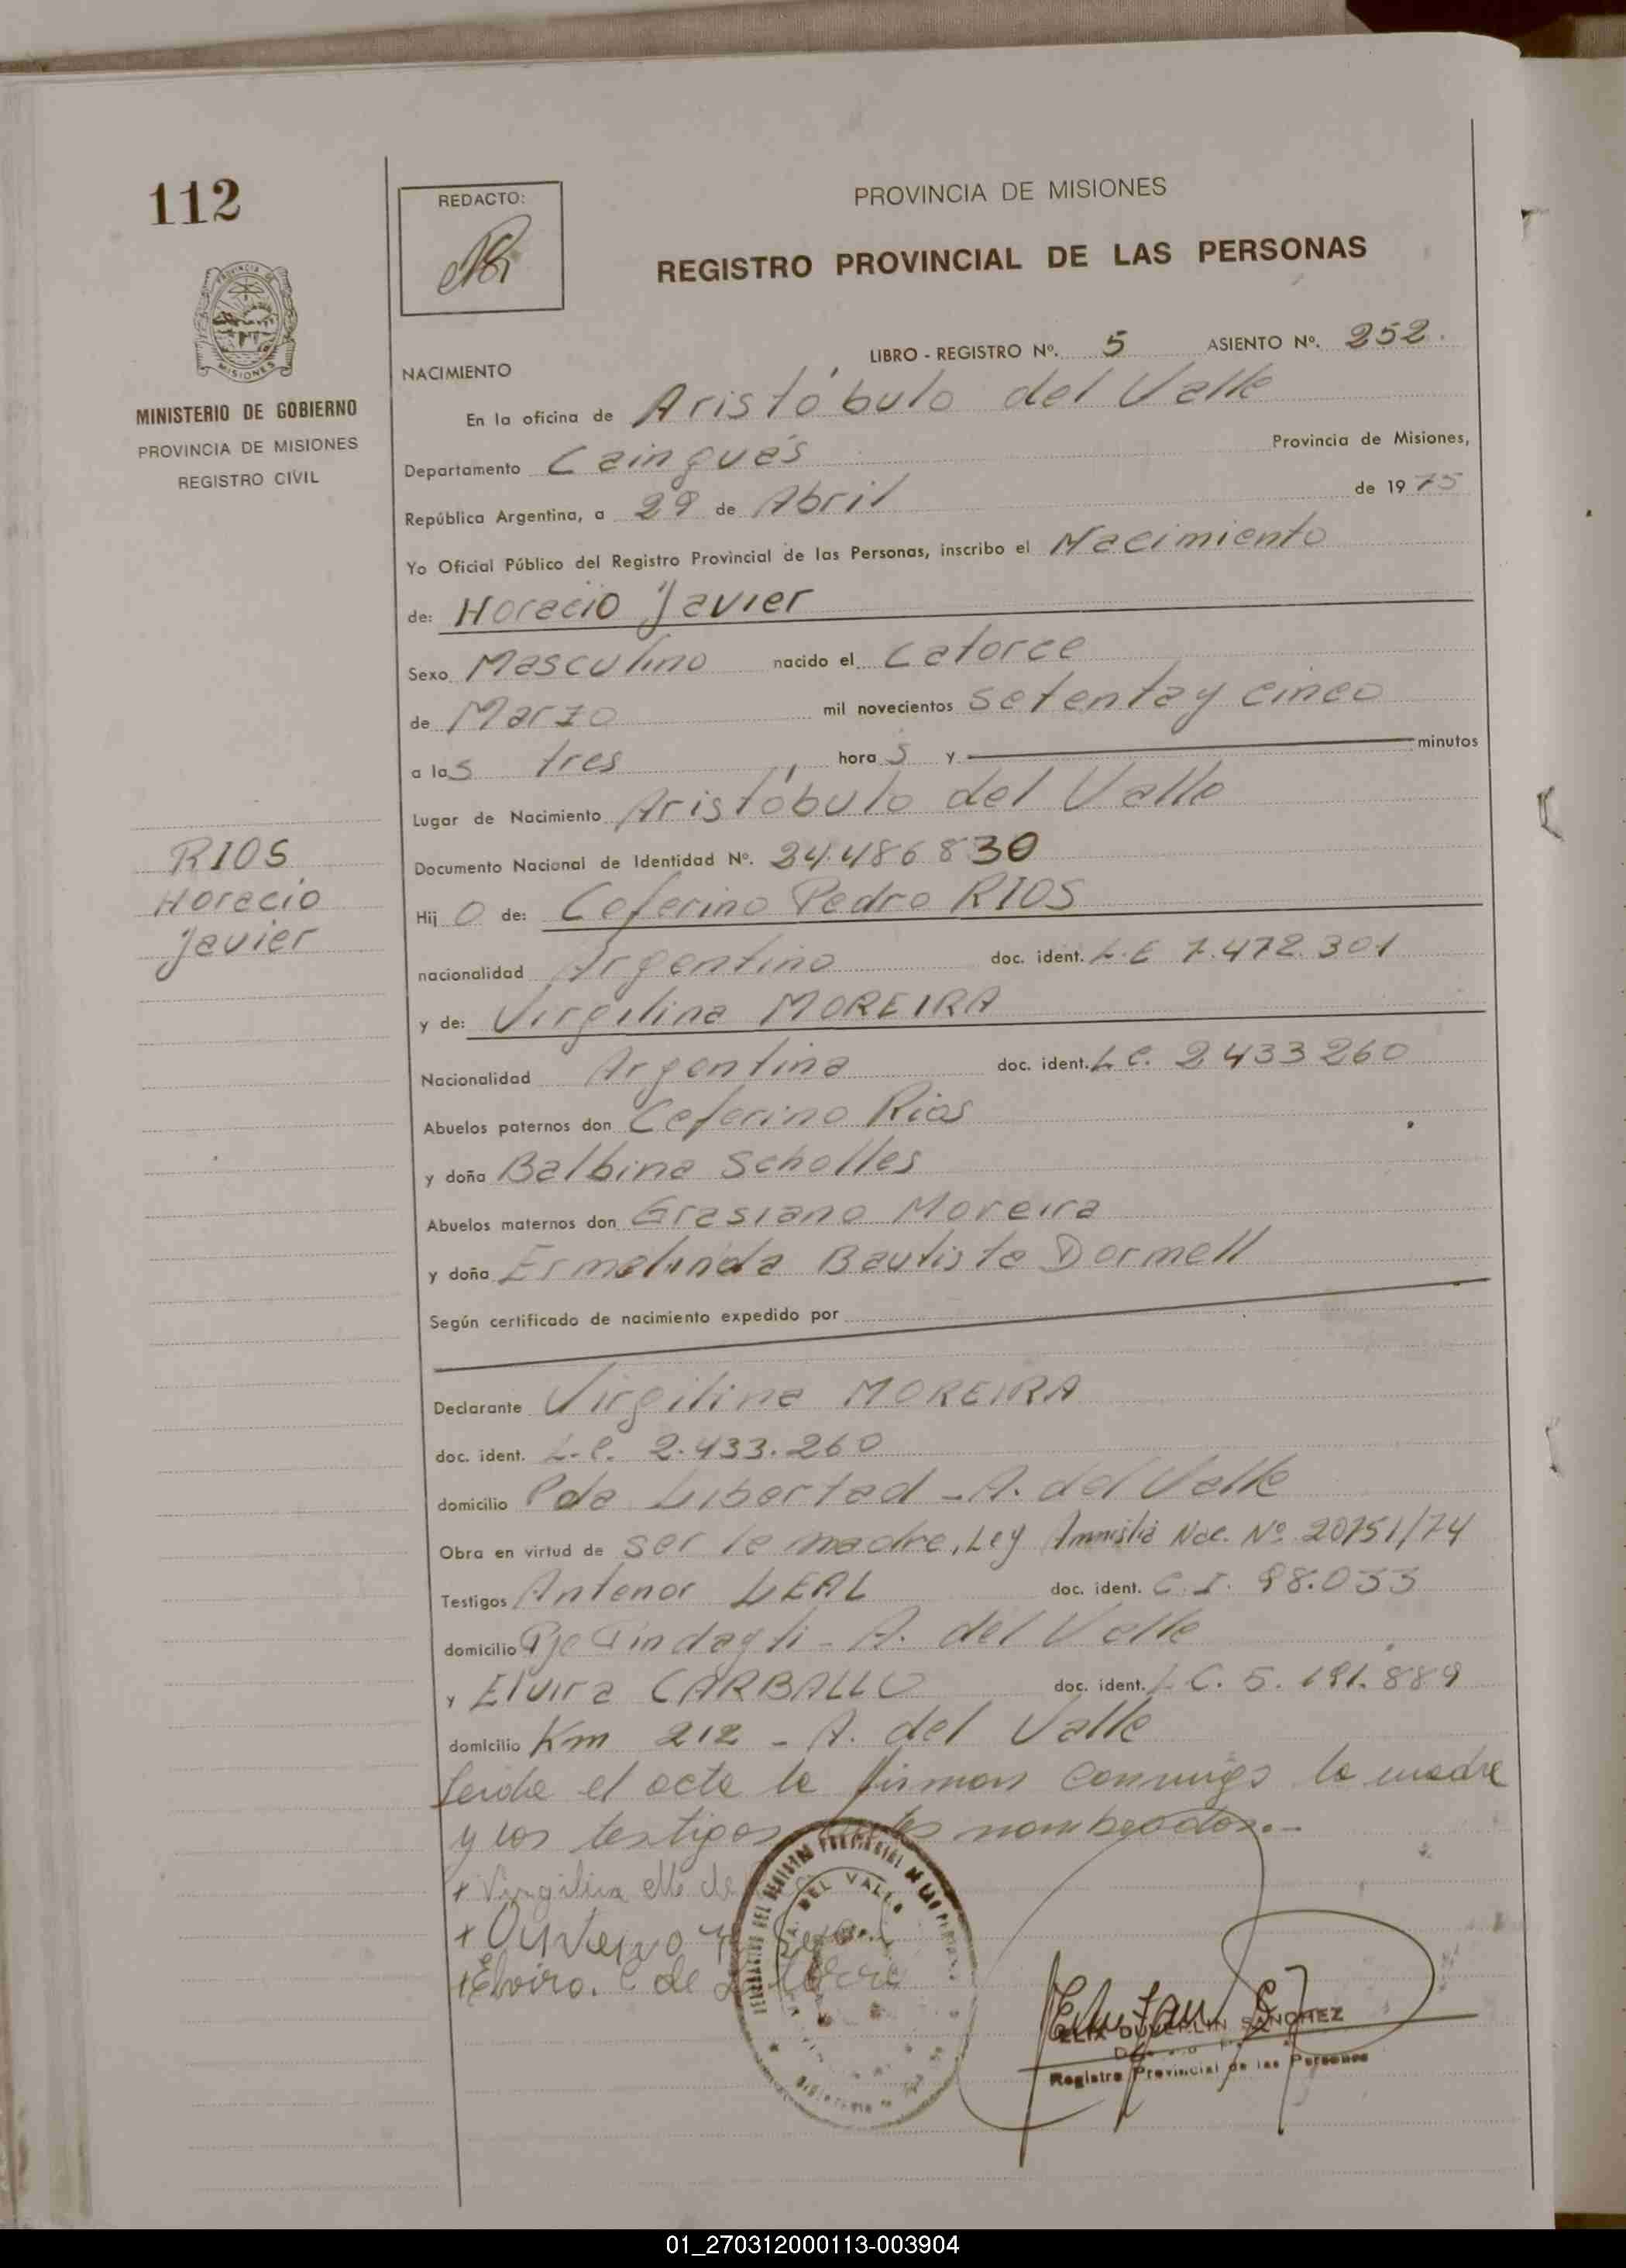 112
REDACTO:
PROVINCIA DE MISIONES
REGISTRO PROVINCIAL DE LAS PERSONAS
MISIONES
MINISTERIO DE GOBIERNO
PROVINCIA DE MISIONES
REGISTRO CIVIL
LIBRO - REGISTRO Nº. 5 ASIENTO Nº. 252.
NACIMIENTO
En la oficina de Aristóbulo del Valle
Departamento Cainguás Provincia de Misiones,
República Argentina, a 29 de Abril de 1975
Yo Oficial Público del Registro Provincial de las Personas, inscribo el Nacimiento
de: Horacio Javier
Sexo Masculino nacido el Catorce
de Marzo mil novecientos setenta y cinco
a las tres horas y minutos
Lugar de Nacimiento Aristóbulo del Valle
Documento Nacional de Identidad Nº. 24.486830
RIOS
Horacio
Javier
Hijo de: Ceferino Pedro RIOS
nacionalidad Argentina doc. ident. L.E 7.472.301
y de: Virgilina MOREIRA
Nacionalidad Argentina doc. ident. L.C. 2433260
Abuelos paternos don Ceferino Rios
y doña Balbina Scholles
Abuelos maternos don Grasiano Moreira
y doña Ermelinda Bautista Dormell
Según certificado de nacimiento expedido por
Declarante Virgilina MOREIRA
doc. ident. L.C. 2.433.260
domicilio Pda Libertad - A. del Valle
Obra en virtud de ser la madre, Ley Amnistía Nac. Nº 20751/74
Testigos Antenor LEAL doc. ident. C.I. 98.033
domicilio Pje Pindayti - A. del Valle
y Elvira CARBALLO doc. ident. L.C. 5.191.889
domicilio Km 212 - A. del Valle
Leida el acta la firman conmigo la madre
y los testigos antes nombrados.-
+ Virgilina M. de
+ Elvira. C de
A. DEL VALLE
FELIX DUVERLIN SANCHEZ
Registro Provincial de las Personas
01_270312000113-003904